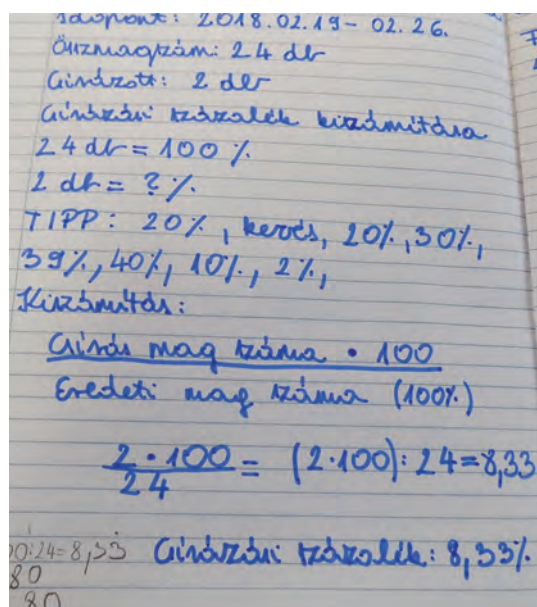 Időpont: 2018.02.19- 02. 26.
Összmagszám: 24 db
Csírázott: 2 db
Csírázási százalék kiszámítása
24 db = 100 %.
2 db = ? %.
TIPP: 20%, kevés, 20%, 30%,
39%, 40%, 10%, 2%,
Kiszámítás:
Csírás mag száma • 100
Eredeti mag száma (100%)
2 • 100 = (2·100): 24=8,33
24
00:24=8,33 Csírázási százalék: 8,33%
80
80